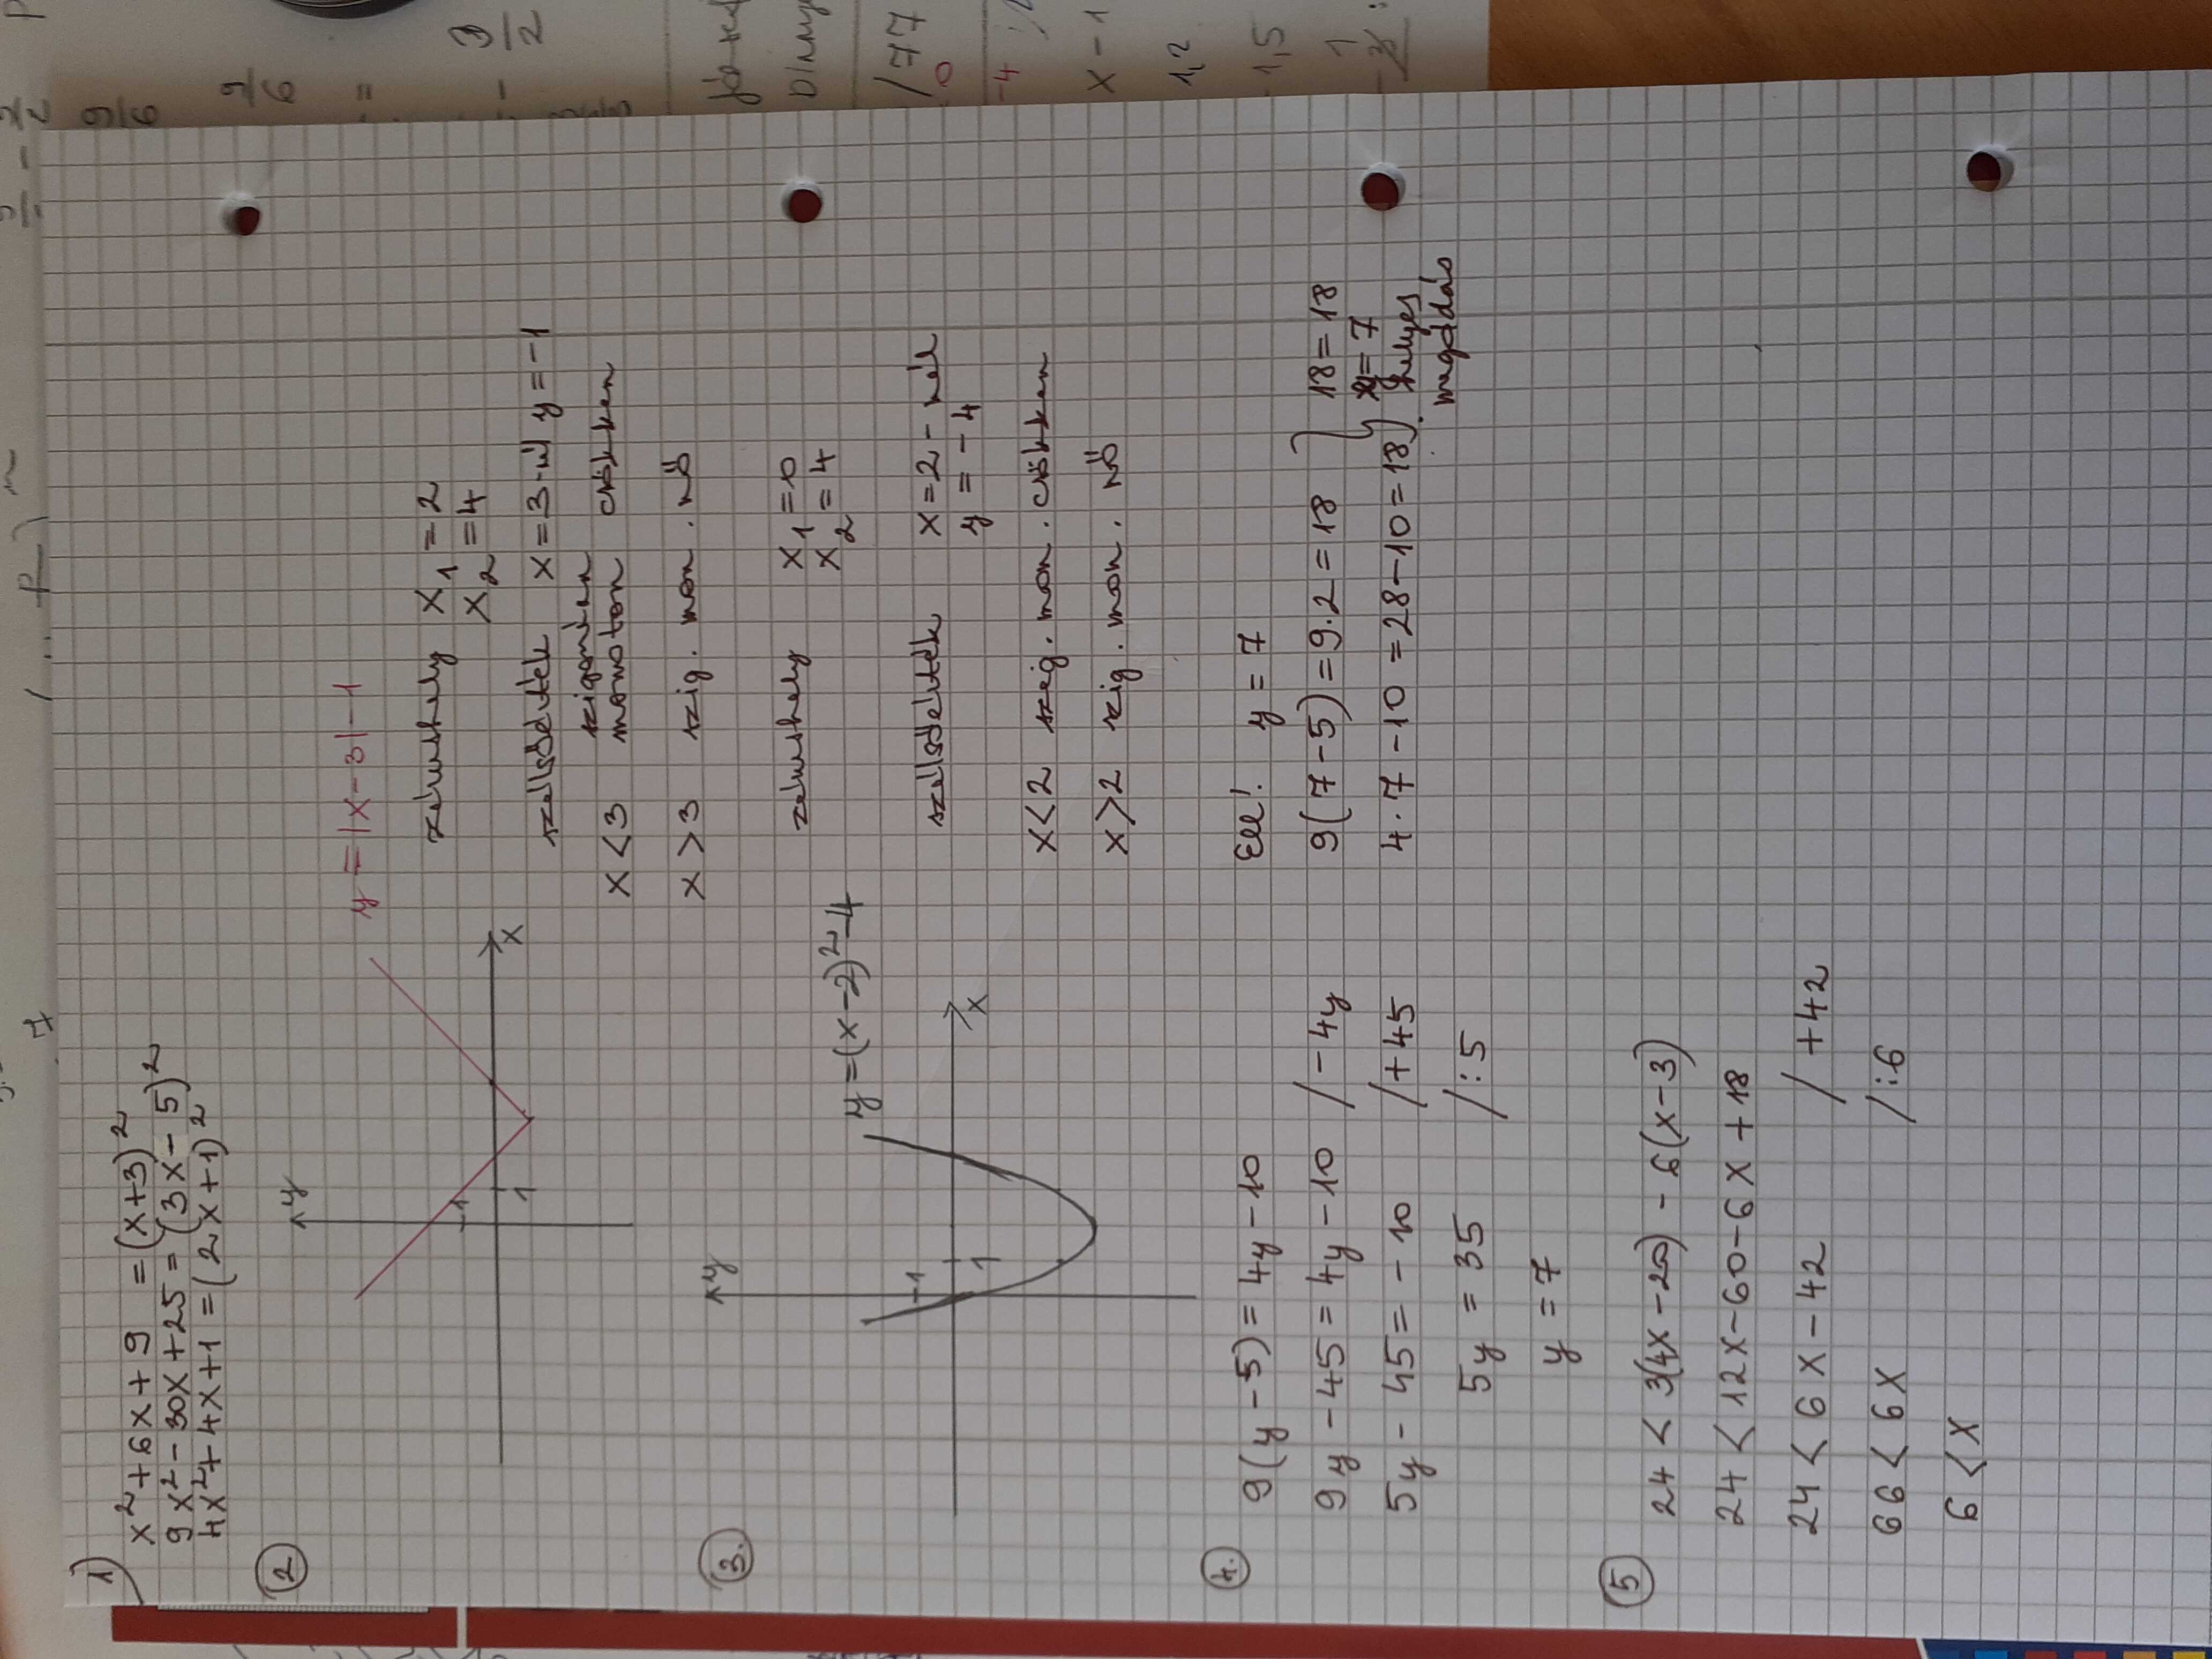 1)
x²+6x+9 = (x+3)²
9x²-30x+25 = (3x-5)²
4x²+4x+1 = (2x+1)²
2
y
1
1
x
y = |x-3|-1
zérushely x₁=2
x₂=4
szélsőérték x=3-nál y=-1
szigorúan
x<3 monoton csökken
x>3 szig. mon. nő
3.
y
1
1
x
y=(x-2)²-4
zérushely x₁=0
x₂=4
szélsőérték x=2-nél
y=-4
x<2 szig. mon. csökken
x>2 szig. mon. nő
4.
9(y-5)=4y-10
9y-45=4y-10 /-4y
5y-45=-10 /+45
5y=35 /:5
y=7
Ell! y=7
9(7-5)=9.2=18 } 18=18
y=7
4.7-10=28-10=18 } helyes
megoldás
5
24<3(4x-20)-6(x-3)
24<12x-60-6x+18
24<6x-42 /+42
66<6x /:6
6<x